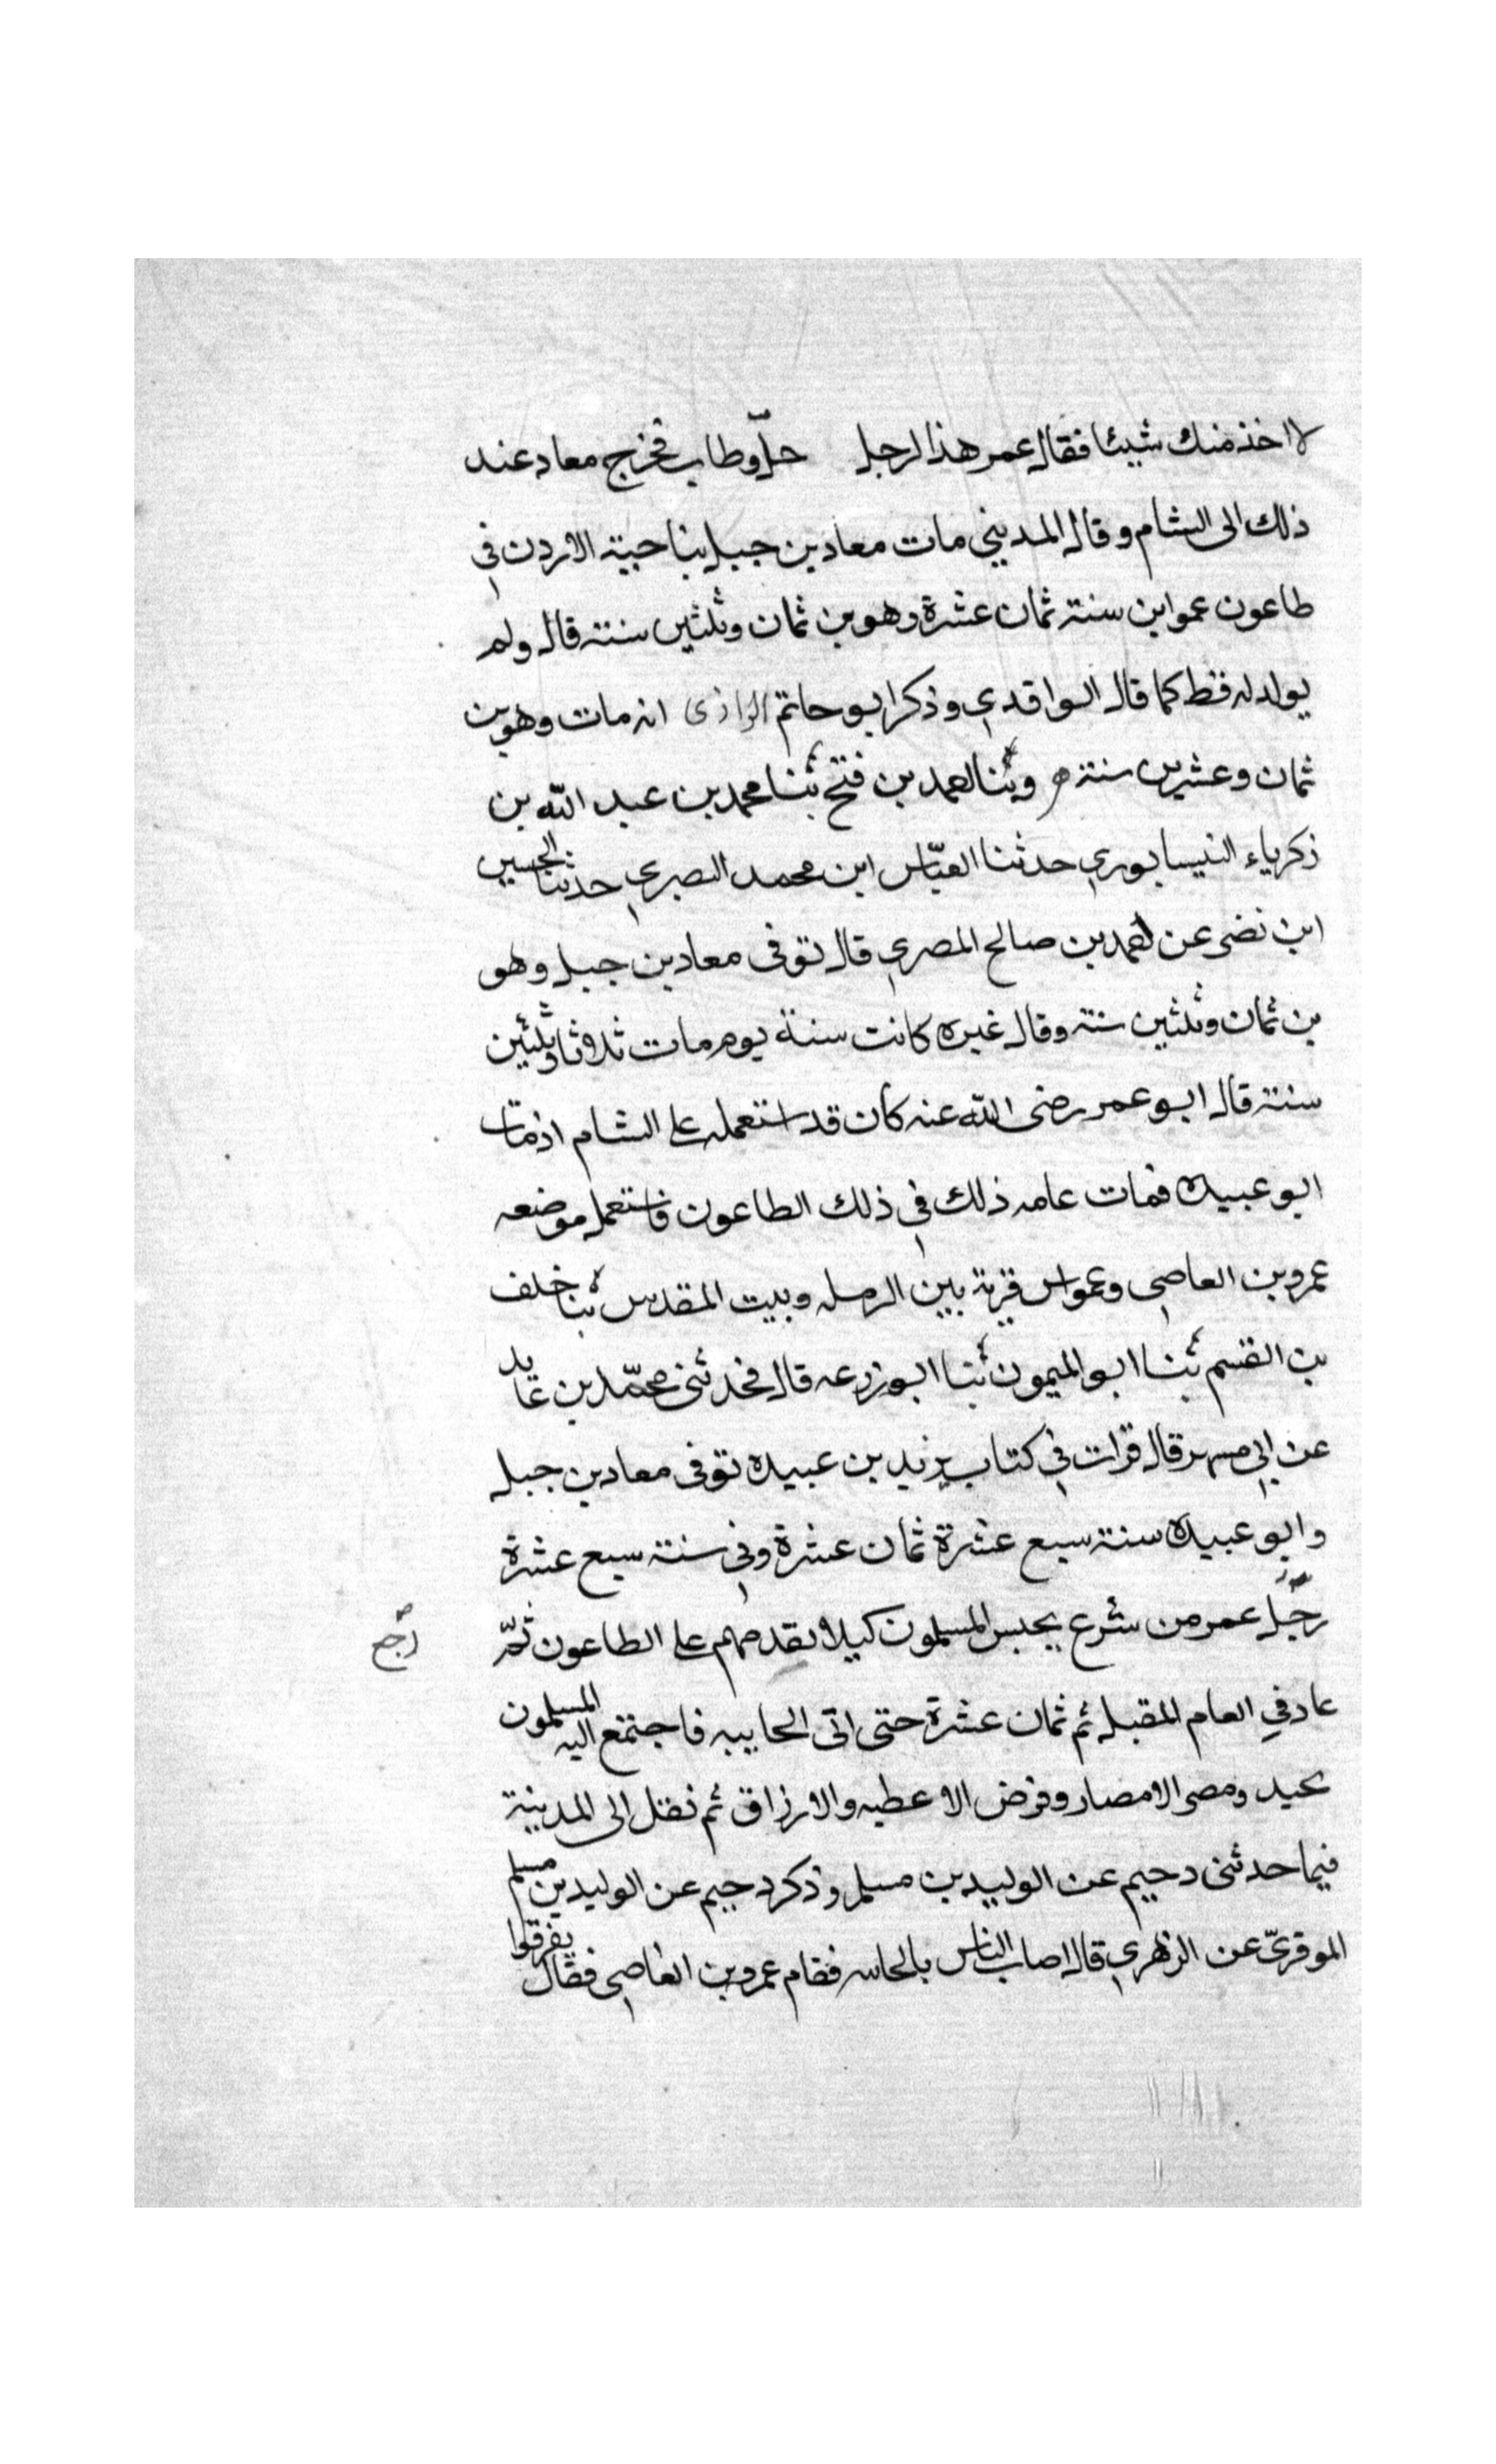 لا اخذ منك شيئا فقال عمر هذا الرجل حلّ وطاب فخرج معاد عند
ذلك الى الشام وقال المديني مات معاد بن جبل بناحية الاردن في
طاعون عمواس سنة ثمان عشرة وهو بن ثمان وثلثين سنة قال ولم
يولد له قط كما قال الواقدي وذكر ابو حاتم الرازى انه مات وهو بن
ثمان وعشرين سنة وثنا احمد بن فتح ثنا محمد بن عبد الله بن
زكرياء النيسابوري حدثنا العبّاس ابن محمد البصري حدثنا الحسين
ابن نصر عن احمد بن صالح المصري قال توفى معاد بن جبل وهو
بن ثمان وثلثين سنة وقال غيره كانت سنة يوم مات ثلاثا وثلثين
سنة قال ابو عمر رضى الله عنه كان قد استعمله على الشام اذ مات
ابو عبيدة فمات عامه ذلك في ذلك الطاعون فاستعمل موضعه
عمرو بن العاصي وعمواس قرية بين الرمله وبيت المقدس ثنا خلف
بن القسم ثنا ابو الميمون ثنا ابو زرعه قال فحدثنى محمّد بن عايد
عن ابي مسهر قال قرات في كتاب يزيد بن عبيدة توفى معاد بن جبل
وابو عبيدة سنة سبع عشرة ثمان عشرة وفي سنة سبع عشرة
رجّل عمر من سرع بجبس المسلمون كيلا يقدمهم على الطاعون ثمّ
رجع
عاد في العام المقبل ثم ثمان عشرة حتى اتى الجابيه فاجتمع اليه المسلمون
ومصر الامصار وفرض الاعطيه والارزاق ثم نقل الى المدينة
فيما حدثنى دحيم عن الوليد بن مسلم وذكر دحيم عن الوليد بن مسلم
الموقريّ عن الزهري قال اصاب الناس بالجابيه فقام عمرو بن العاصي فقال يفرقوا